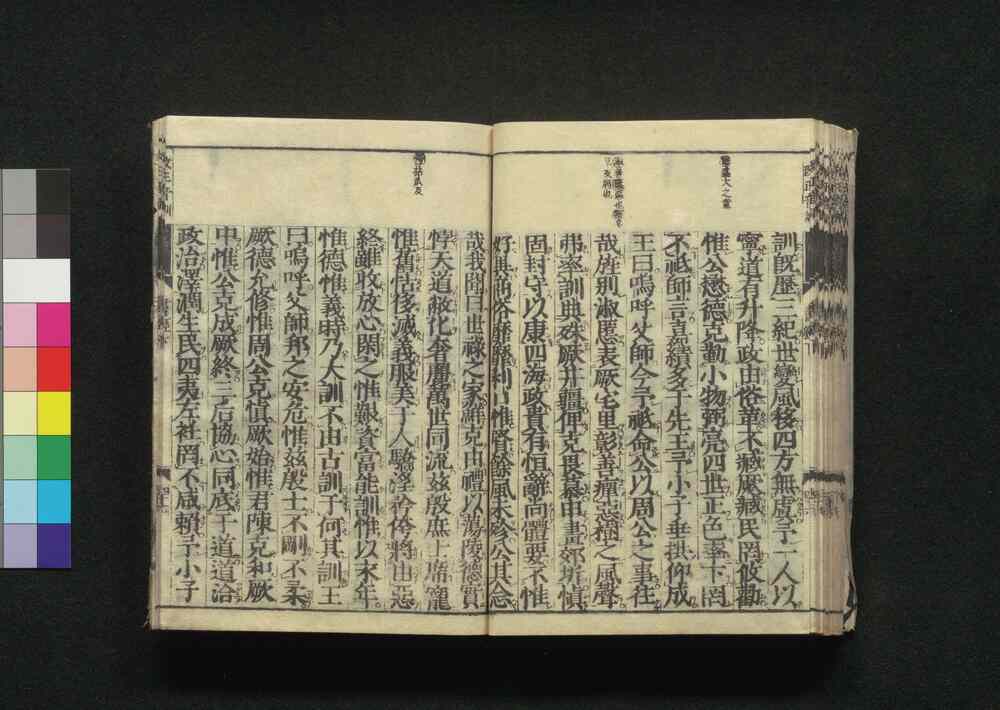 訓既歷三紀世變風移四方無虞予一人以
寧道有升降政由俗革不臧厥臧民罔攸勸
惟公懋德克勤小物弼亮四世正色率下罔
不祗師言嘉績多于先王予小子垂拱仰成
王曰嗚呼父師今予祗命公以周公之事往
哉旌別淑慝表厥宅里彰善癉惡樹之風聲
弗率訓典殊厥井疆俾克畏慕申畫郊圻慎
固封守以康四海政貴有恒辭尚體要不惟
好異商俗靡靡利口惟賢餘風未殄公其念
哉我聞曰世祿之家鮮克由禮以蕩陵德實
悖天道敝化奢麗萬世同流茲殷庶士席寵
惟舊怙侈滅義服美于人驕淫矜侉將由惡
終雖收放心閑之惟艱資富能訓惟以永年
惟德惟義時乃大訓不由古訓于何其訓王
曰嗚呼父師邦之安危惟茲殷士不剛不柔
厥德允修惟周公克慎厥始惟君陳克和厥
中惟公克成厥終三后協心同底于道道洽
政治澤潤生民四夷左衽罔不咸賴予小子